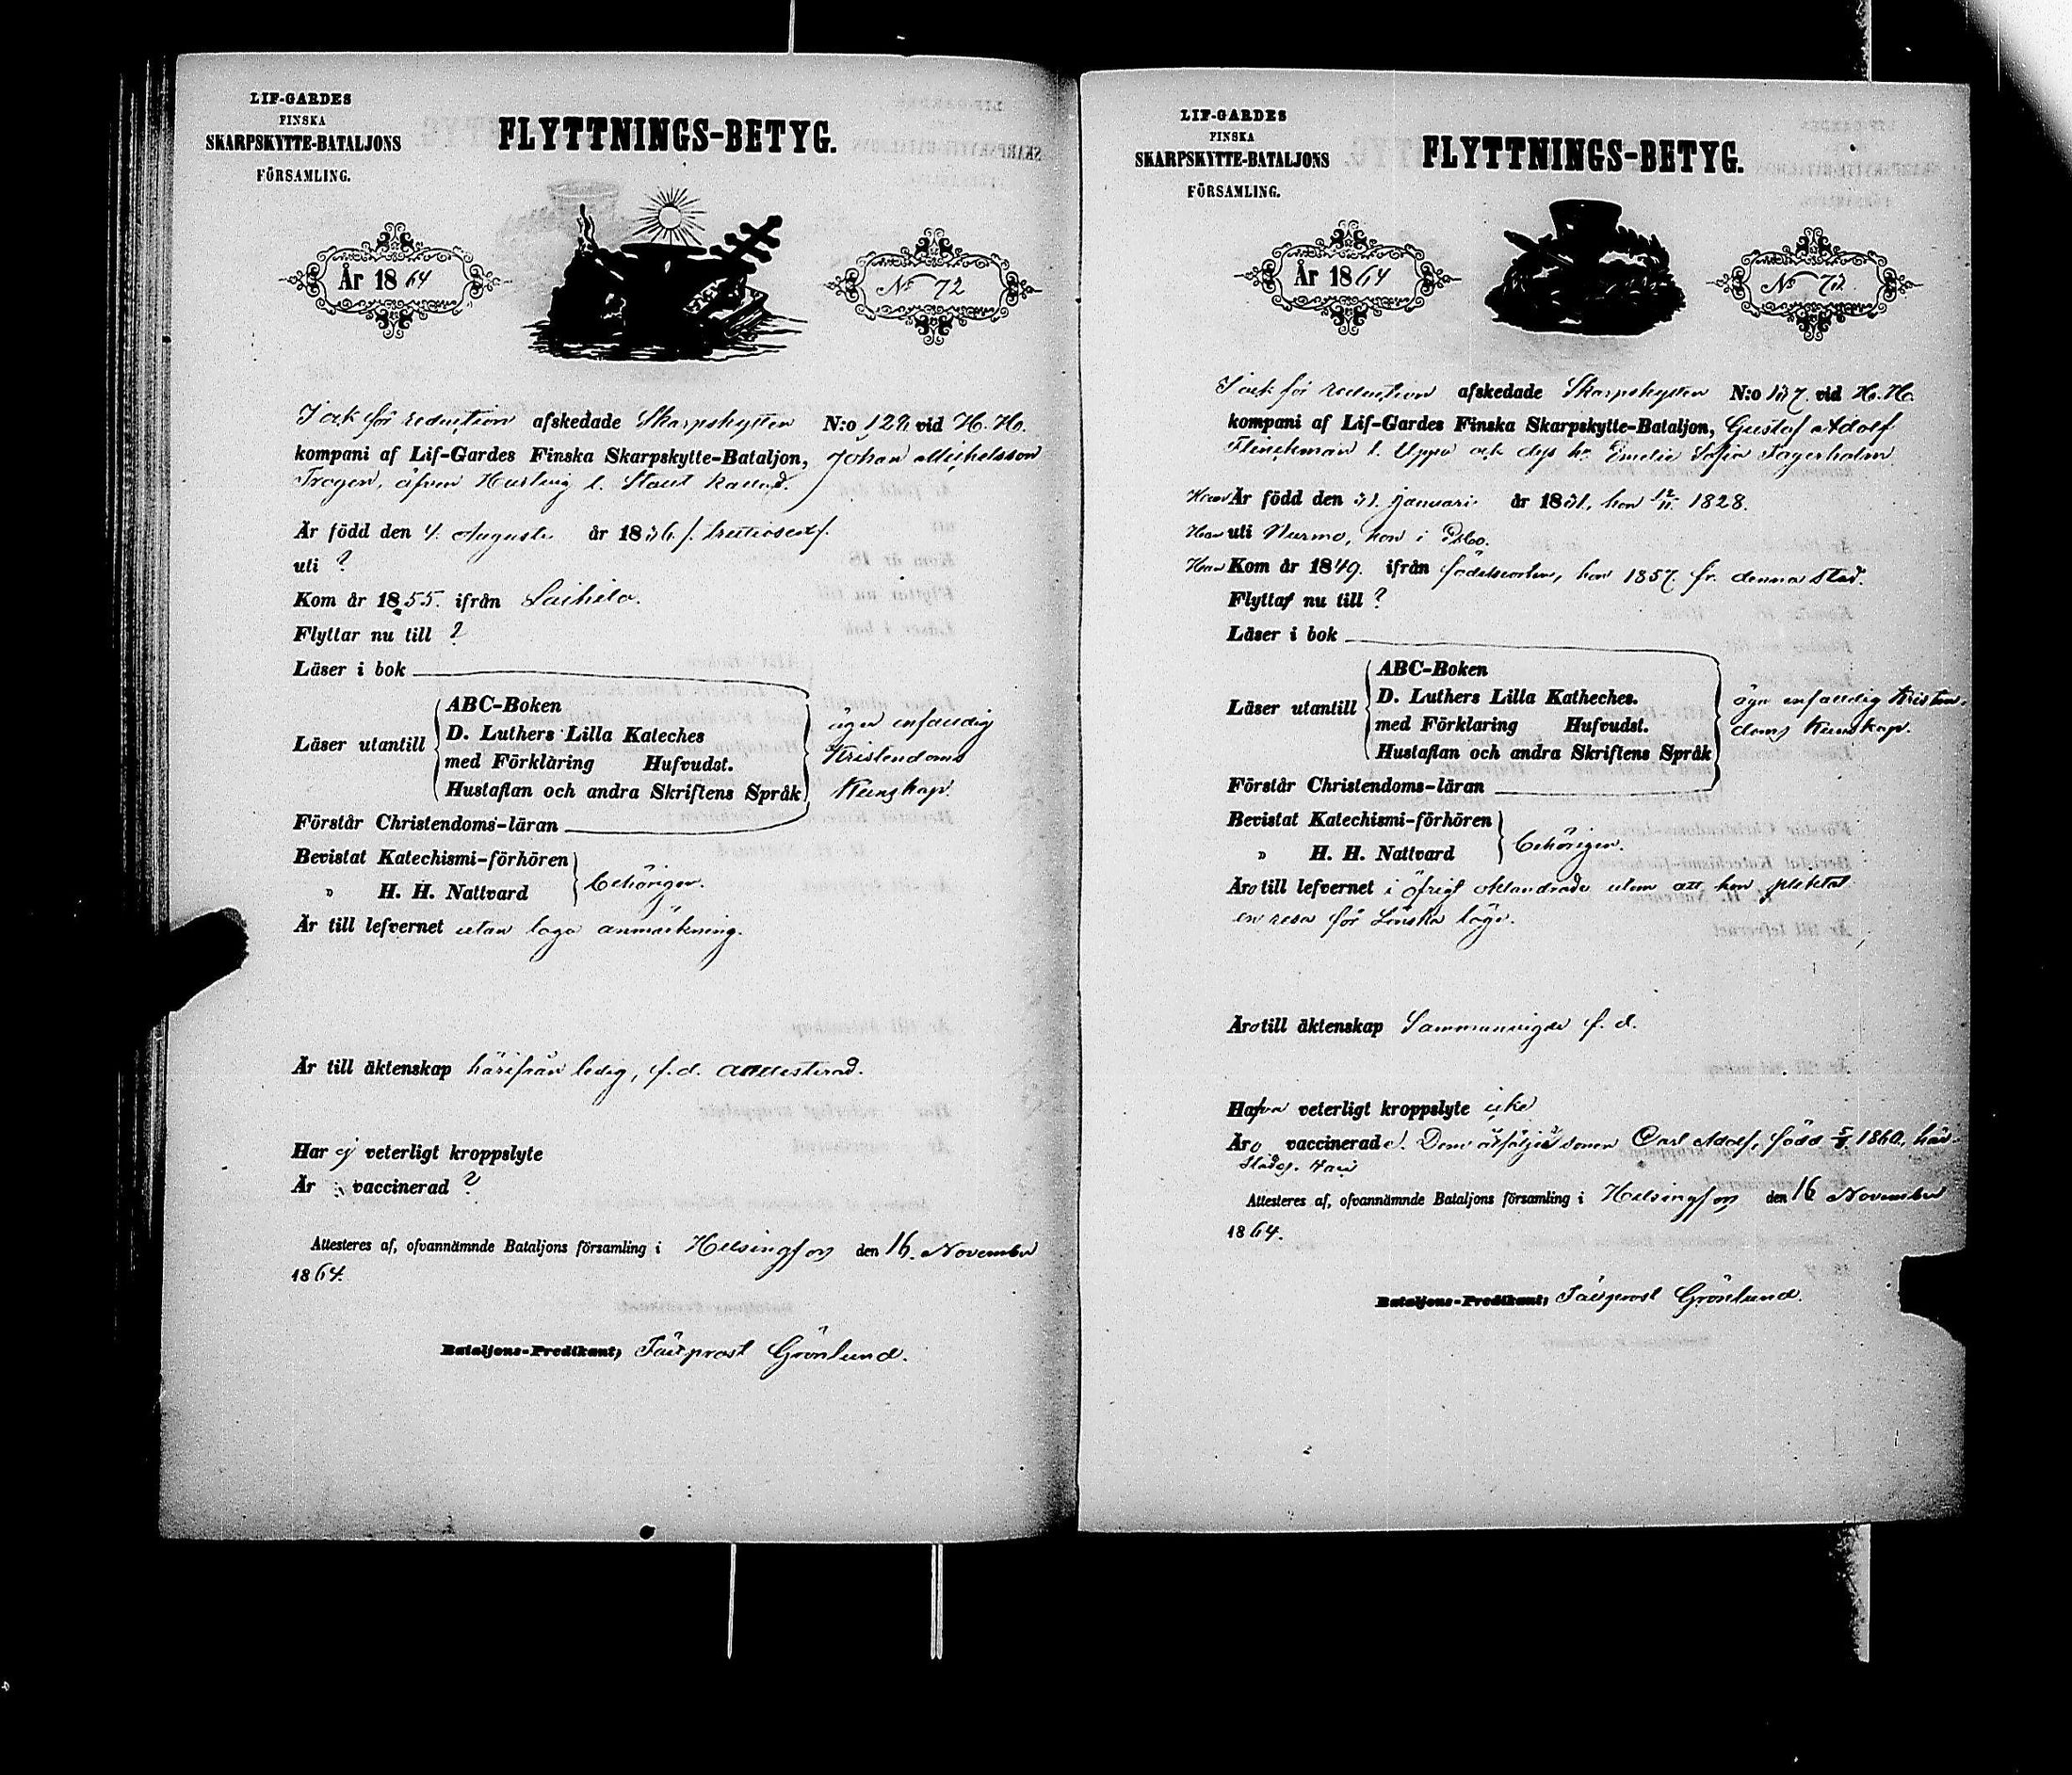 LIF-GARDES
FINSKA
SKARPSKYTTE-BATALJONS
FÖRSAMLING.
FLYTTNINGS-BETYG.
År 1864
No 72
för reduction afskedade Skarpskytten N:o 129 vid H. H.
kompani af Lif-Gardes Finska Skarpskytte-Bataljon, Johan Michelsson
Trogen, äfven Hurtig l. Staut kallad.
Är född den 4. Augusti år 1836 /: trettiosex :/.
uti ?
Kom år 1855. ifrån Laihela.
Flyttar nu till ?
Läser i bok
Läser utantill
ABC-Boken
D. Luthers Lilla Kateches
med Förklaring Hufvudst.
Hustaflan och andra Skriftens Språk
äger enfaldig
Kristendoms
Kunskap.
Förstår Christendoms-läran
Bevistat Katechismi-förhören
" H. H. Nattvard
behörigen.
Är till lefvernet utan laga anmärkning.
Är till äktenskap härifrån ledig, f. d.
Har ej veterligt kroppslyte
Är vaccinerad ?
Attesteres af, ofvannämnde Bataljons församling i Helsingfors den 16. November
1864.
Bataljons-Predikant, Grönlund.
LIF-GARDES
FINSKA
SKARPSKYTTE-BATALJONS
FÖRSAMLING.
FLYTTNINGS-BETYG.
År 1864
No 73.
för reduction afskedade Skarpskytten N:o 137. vid H. H.
kompani af Lif-Gardes Finska Skarpskytte-Bataljon, Gustaf Adolf
Flinckman l. Uppa och dess hu Emelie Sofia Fagerholm
Han Är född den 31. Januari år 1831, hon 12/11 1828.
Han uti Nurmo, hon i Esbo.
Han Kom år 1849. ifrån födelseorten, hon 1857. fr. denna stad.
Flytta nu till ?
Läser i bok
Läser utantill
ABC-Boken
D. Luthers Lilla Katheches.
med Förklaring Hufvudst.
Hustaflan och andra Skriftens Språk
äga enfaldig Kristen-
doms Kunskap.
Förstår Christendoms-läran
Bevistat Katechismi-förhören
" H. H. Nattvard
behörigen.
Äro till lefvernet i öfrigt oklandrade utom att hon pliktat
en resa för lönska läge.
Äro till äktenskap Sammanvigde f. d.
Hafva veterligt kroppslyte icke
Äro vaccinerade. Dem åtföljer sonen Carl Adolf, född 5/8 1860, här-
städes.
Attesteres af, ofvannämnde Bataljons församling i Helsingfors den 16 November
1864.
Bataljons-Predikant, Grönlund.